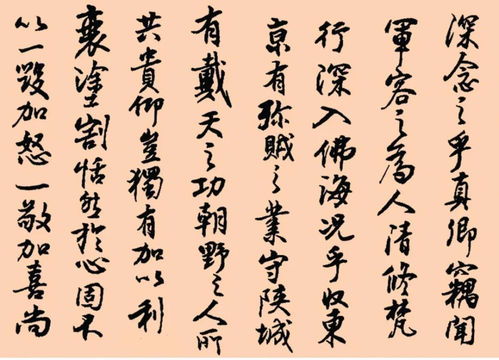 深念之乎真卿竊聞
軍容之為人清修梵
行深入佛海况乎收東
京有殄賊之業守陝城
有戴天之功朝野之人所
共貴仰豈獨有加以利
衰塗割恬然於心固不
以一毀加怒一敬加喜尚